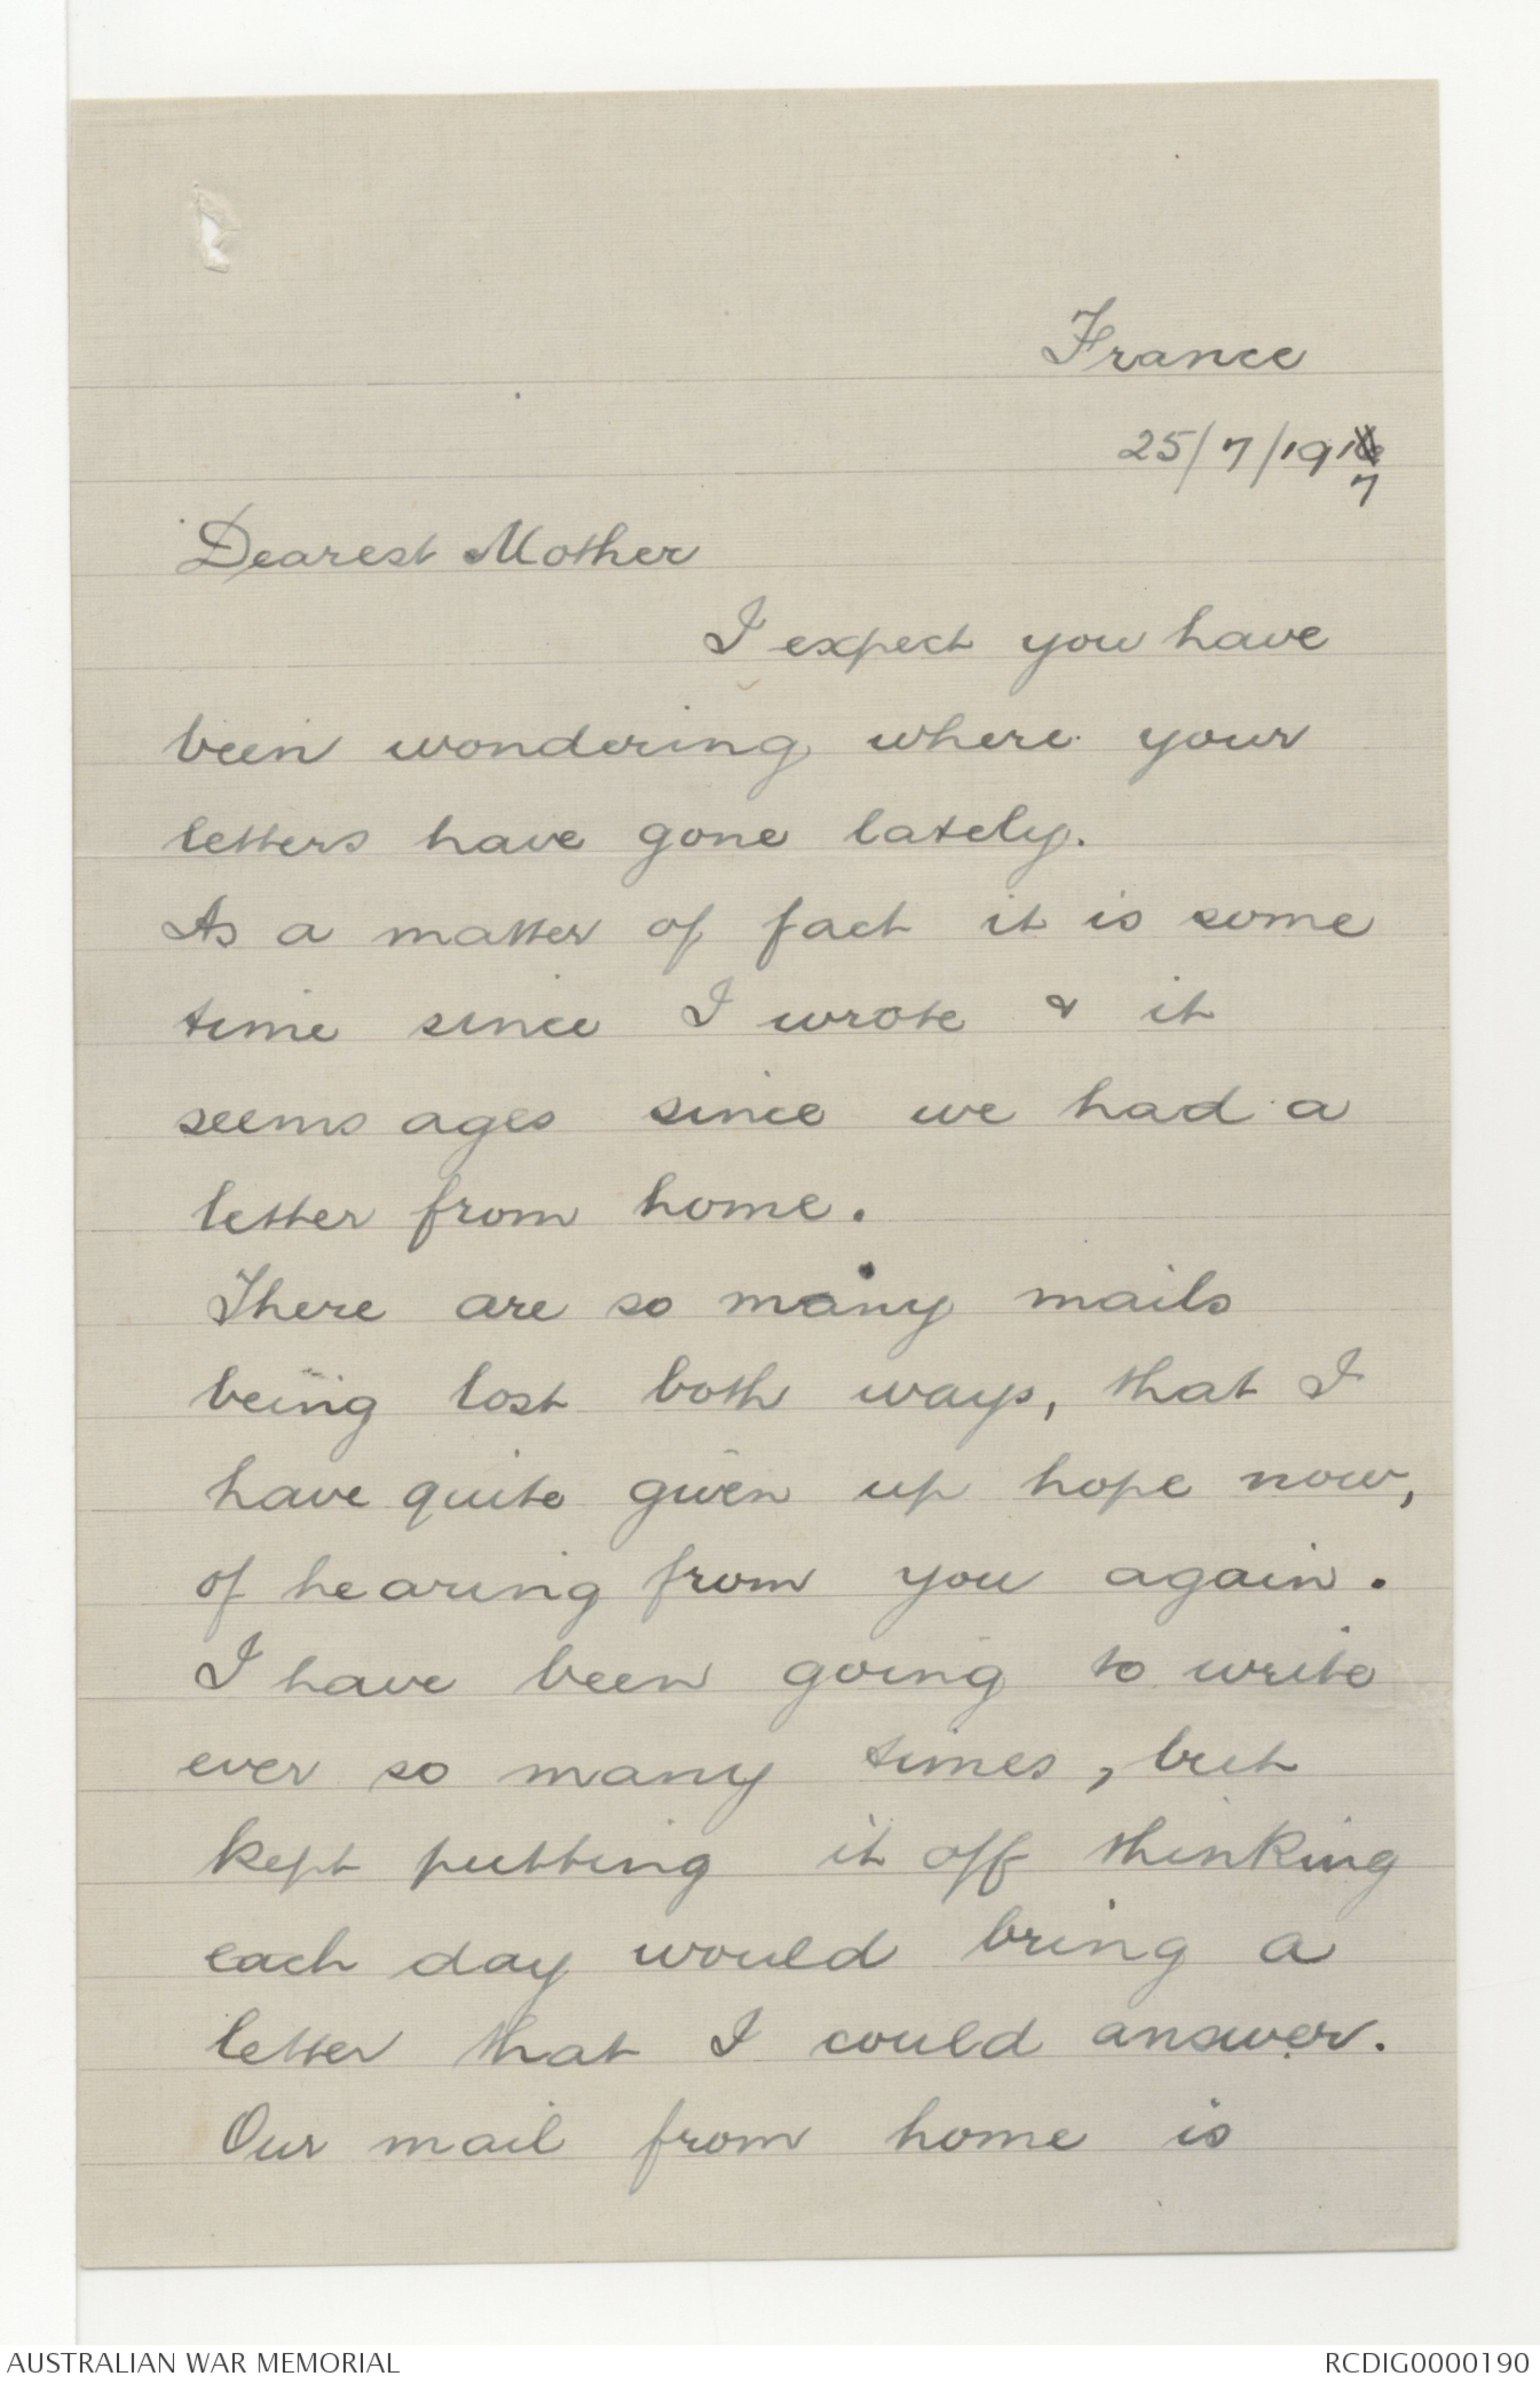 France
25/7/1917
Dearest Mother
I expect you have
been wondering where your
letters have gone lately.
As a matter of fact it is some
time since I wrote & it
seems ages since we had a
letter from home.
There are so many mails
being lost both ways, that I
have quite given up hope now,
of hearing from you again.
I have been going to write
ever so many times, but
kept putting it off thinking
each day would bring a
letter that I could answer.
Our mail from home is
AUSTRALIAN WAR MEMORIAL
RCDIG0000190